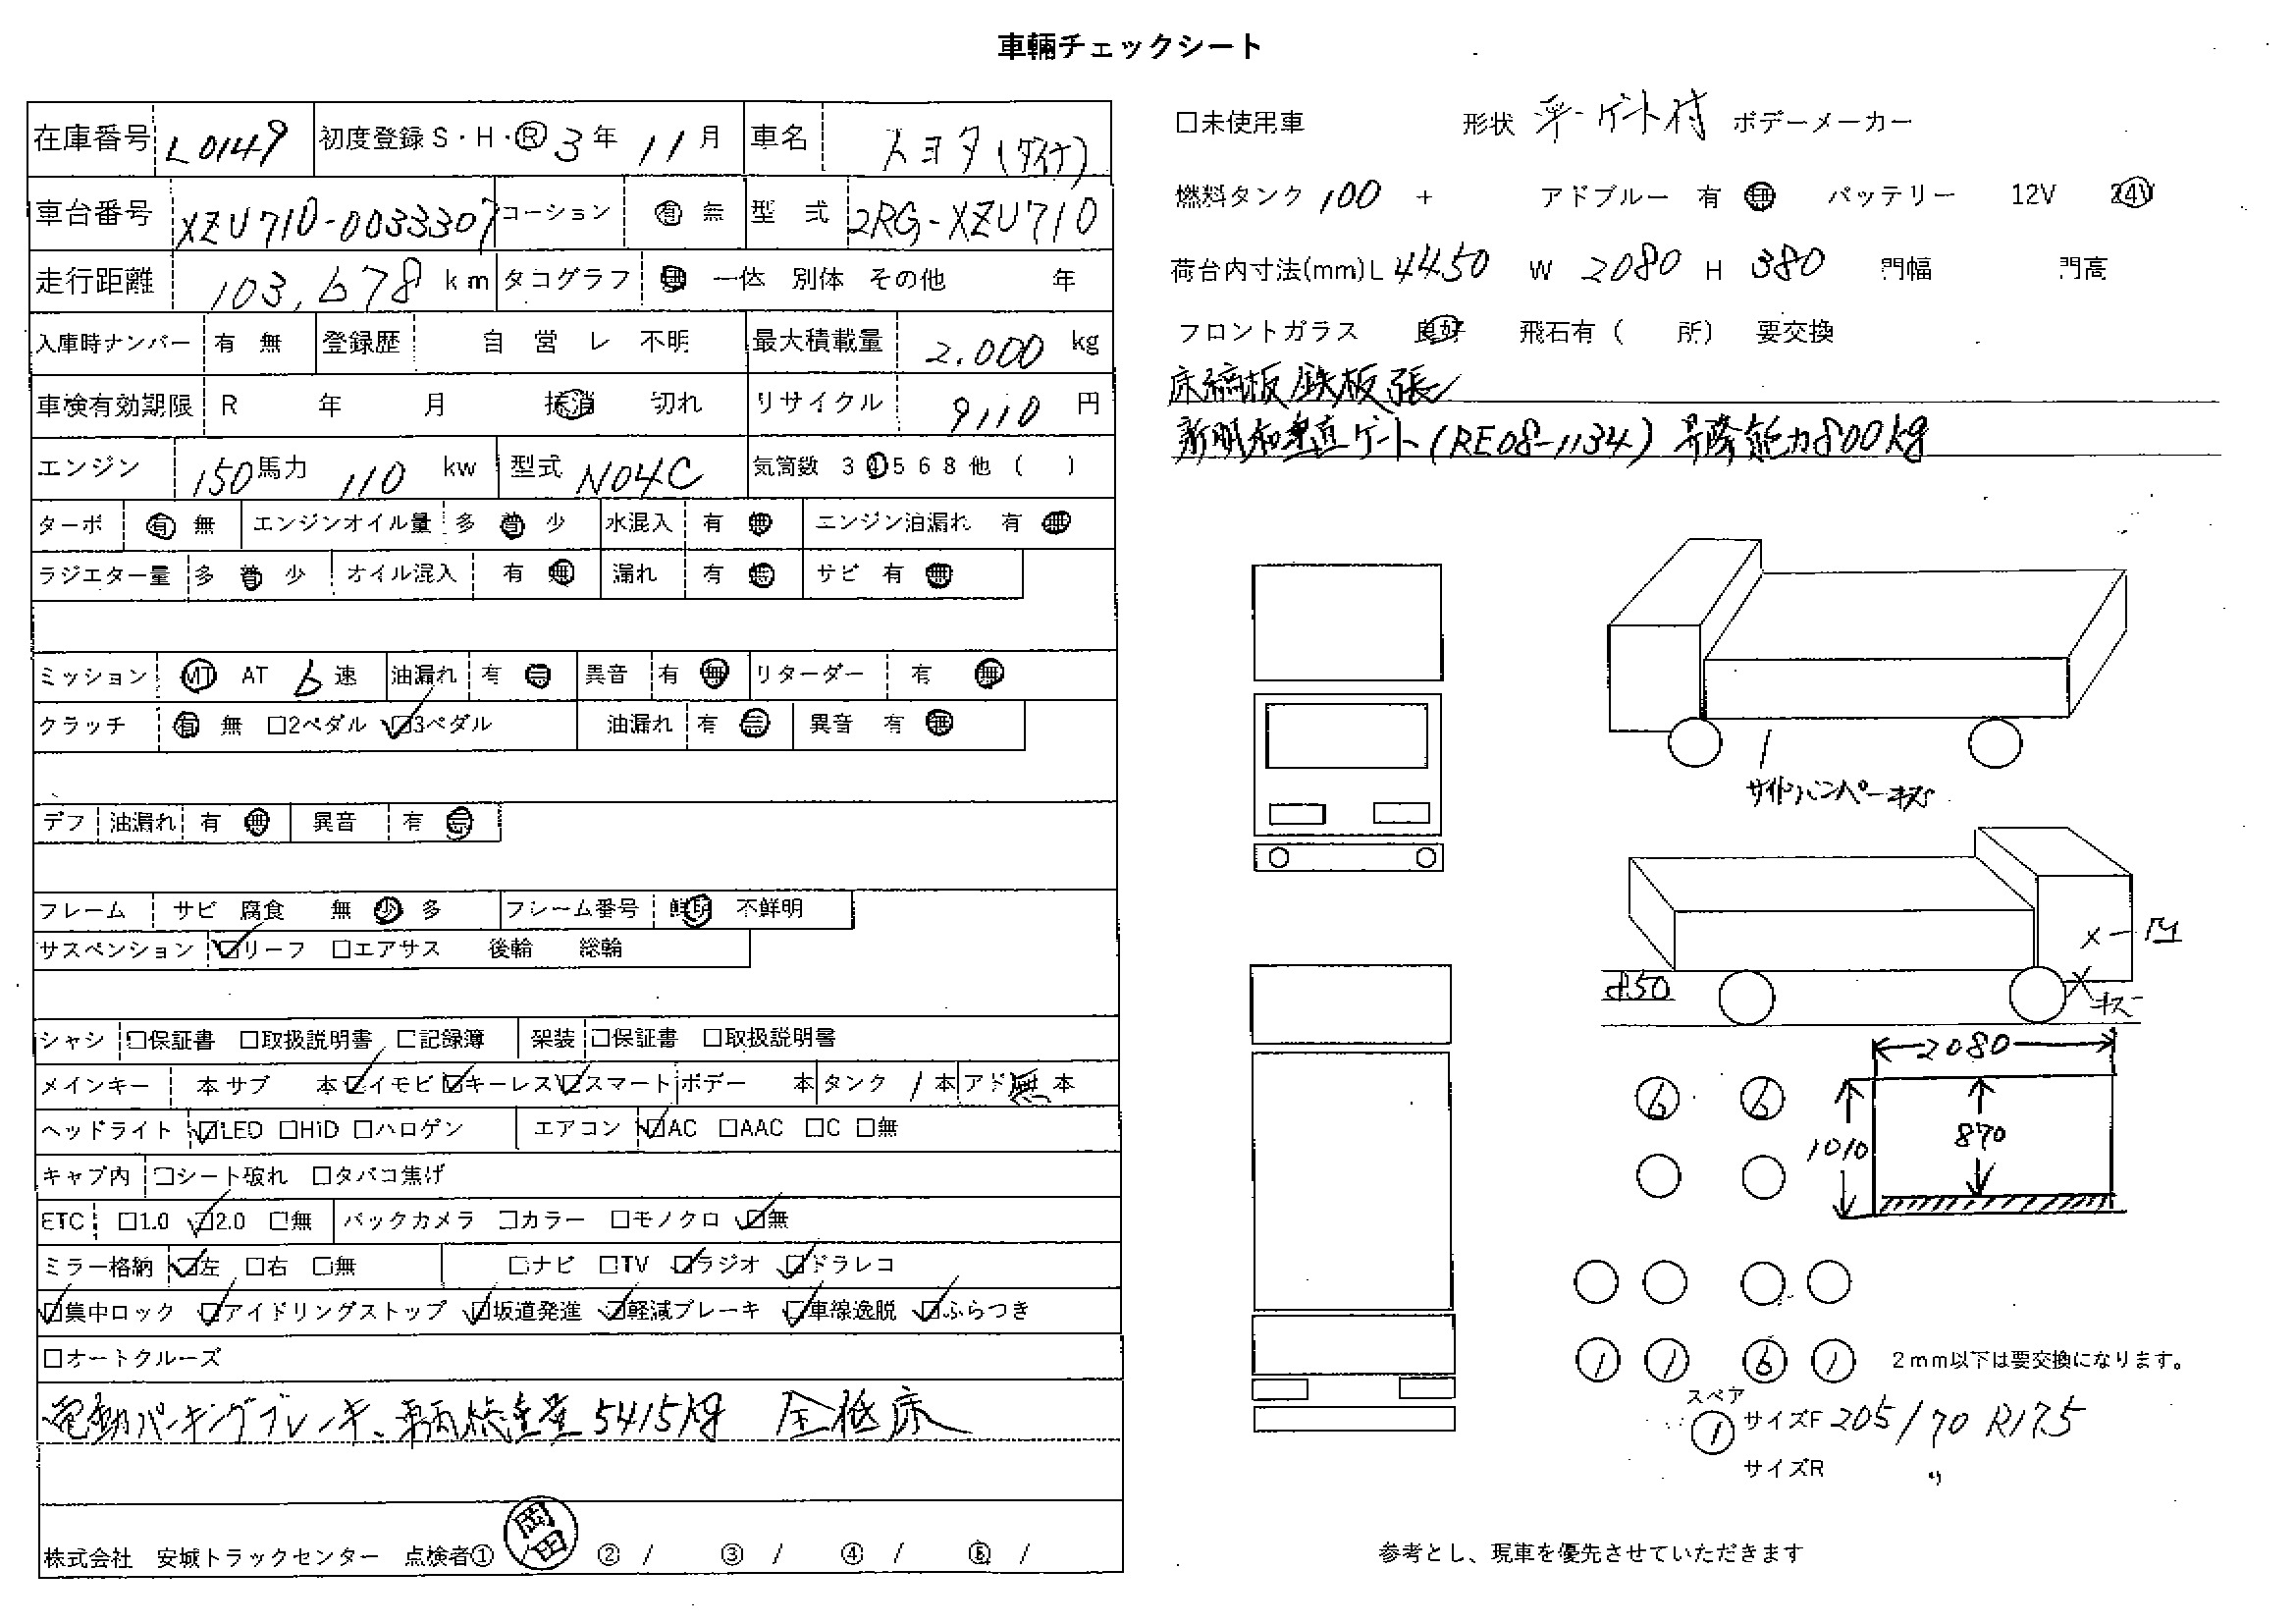 車輛チェックシート
在庫番号 L0149 初度登録 S・H・R 3年 11月 車名 トヨタ(ダイナ)
車台番号 XZU710-0033307 コーション 有 無 型 式 2RG-XZU710
走行距離 103,678 km タコグラフ 無 一体 別体 その他 年
入庫時ナンバー 有 無 登録歴 自 営 レ 不明 最大積載量 2.000 kg
車検有効期限 R 年 月 抹消 切れ リサイクル 9110 円
エンジン 150馬力 110 kw 型式 N04C 気筒数 3 4 5 6 8 他 ( )
ターボ 有 無 エンジンオイル量 多 普 少 水混入 有 無 エンジン油漏れ 有 無
ラジエター量 多 普 少 オイル混入 有 無 漏れ 有 無 サビ 有 無
ミッション MT AT 6 速 油漏れ 有 無 異音 有 無 リターダー 有 無
クラッチ 有 無 □2ペダル ☑3ペダル 油漏れ 有 無 異音 有 無
デフ 油漏れ 有 無 異音 有 無
フレーム サビ 腐食 無 少 多 フレーム番号 鮮明 不鮮明
サスペンション ☑リーフ □エアサス 後輪 総輪
シャシ □保証書 □取扱説明書 □記録簿 架装 □保証書 □取扱説明書
メインキー 本 サブ 本 ☑イモビ ☑キーレス ☑スマート ボデー 本 タンク 1 本 アド 無 本
ヘッドライト ☑LED □HID □ハロゲン エアコン ☑AC □AAC □C □無
キャブ内 □シート破れ □タバコ焦げ
ETC □1.0 ☑2.0 □無 バックカメラ □カラー □モノクロ ☑無
ミラー格納 ☑左 □右 □無 □ナビ □TV ☑ラジオ ☑ドラレコ
☑集中ロック ☑アイドリングストップ ☑坂道発進 ☑軽減ブレーキ ☑車線逸脱 ☑ふらつき
□オートクルーズ
電動パーキングブレーキ、車両総重量5415kg 全低床
株式会社 安城トラックセンター 点検者① 岡田 ② / ③ / ④ / ⑤ /
□未使用車 形状 平-ゲート付 ボデーメーカー
燃料タンク 100 + アドブルー 有 無 バッテリー 12V 24V
荷台内寸法(mm)L 4450 W 2080 H 380 門幅 門高
フロントガラス 良好 飛石有 ( 所) 要交換
床縞板鉄板張
新明和垂直ゲート(RE08-1134) 昇降能力800kg
サイドバンパーキズ
凹
850
キズ
2080
6 6
1010
870
1 1 6 1 2mm以下は要交換になります。
スペア
1 サイズF 205/70 R17.5
サイズR 〃
参考とし、現車を優先させていただきます